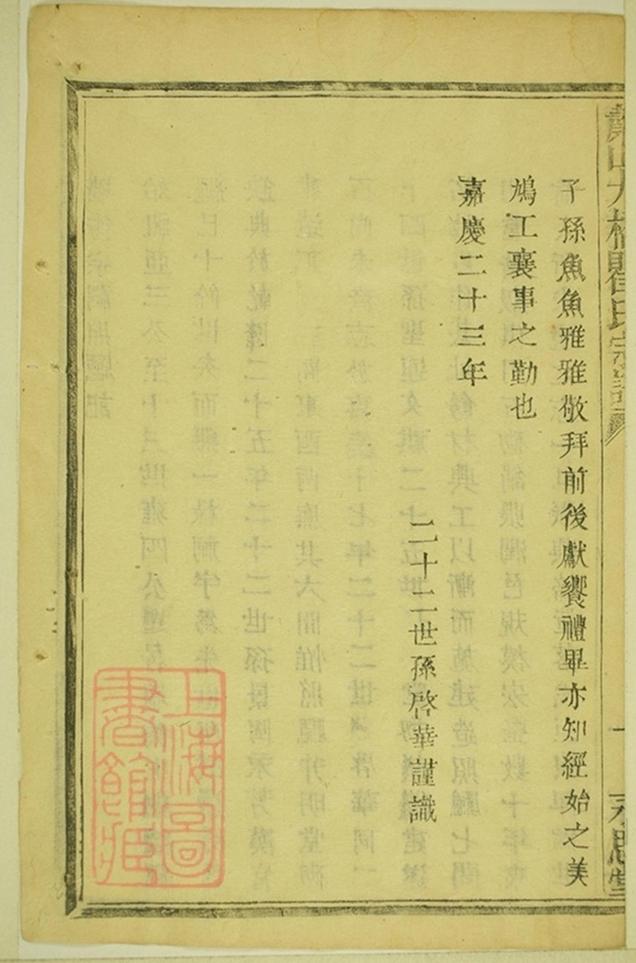 蕭山大橋瞿氏宗譜
一
永思堂
子孫魚魚雅雅敬拜前後獻饗禮畢亦知經始之美
鳩工襄事之勤也
嘉慶二十三年
二十二世孫啓華謹識
上海圖書館藏